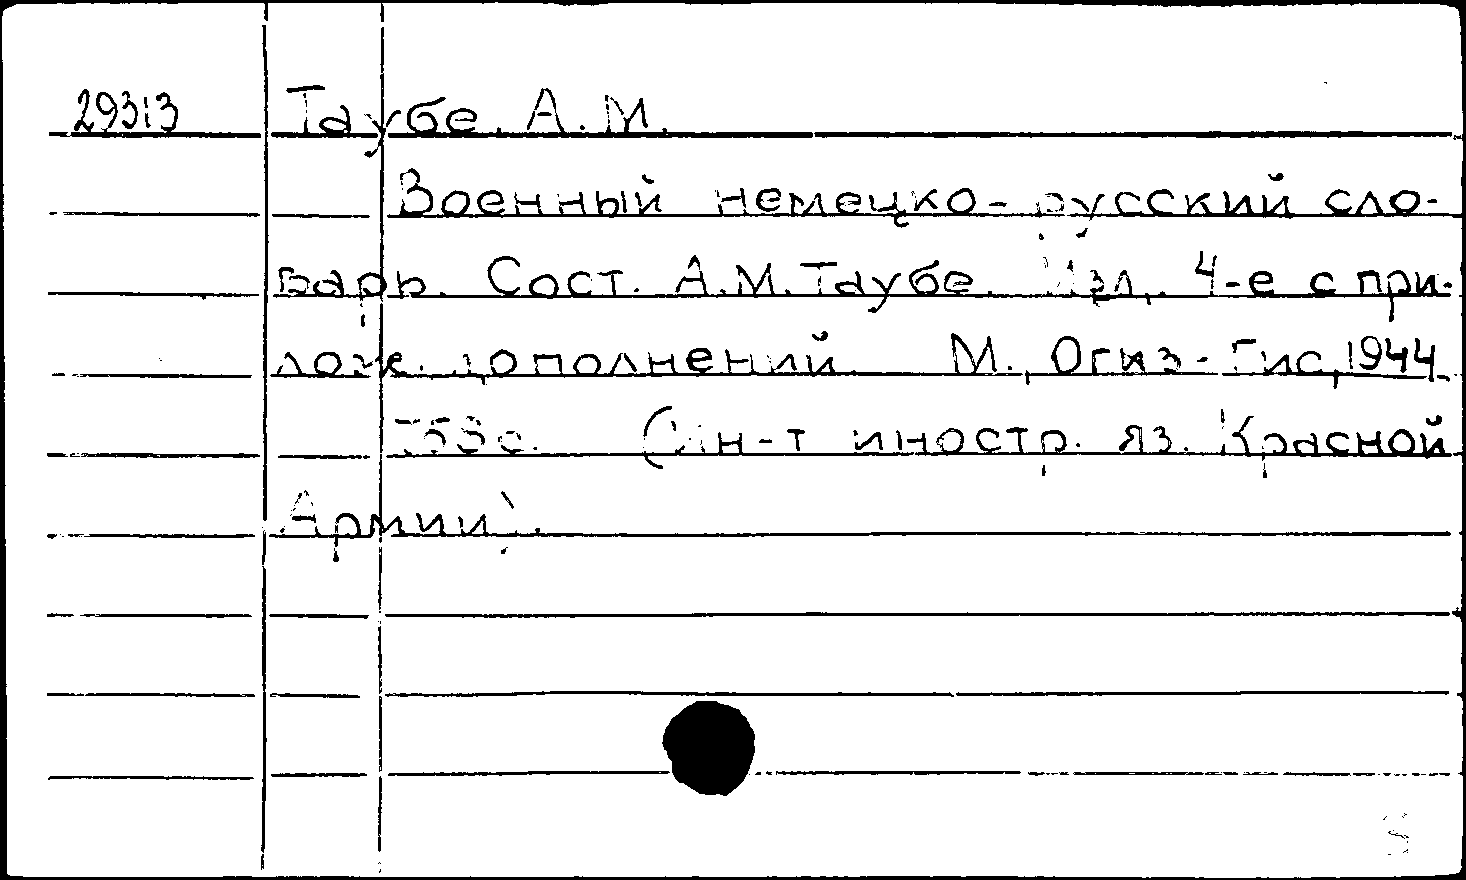 29313 Таубе, А.М.
Военный немецко-русский сло-
варь. Сост. А.М. Таубе. Изд. 4-е с при-
лож. дополнений. М., Огиз-Гис, 1944.
(Ин-т иностр. яз. Красной
Армии).